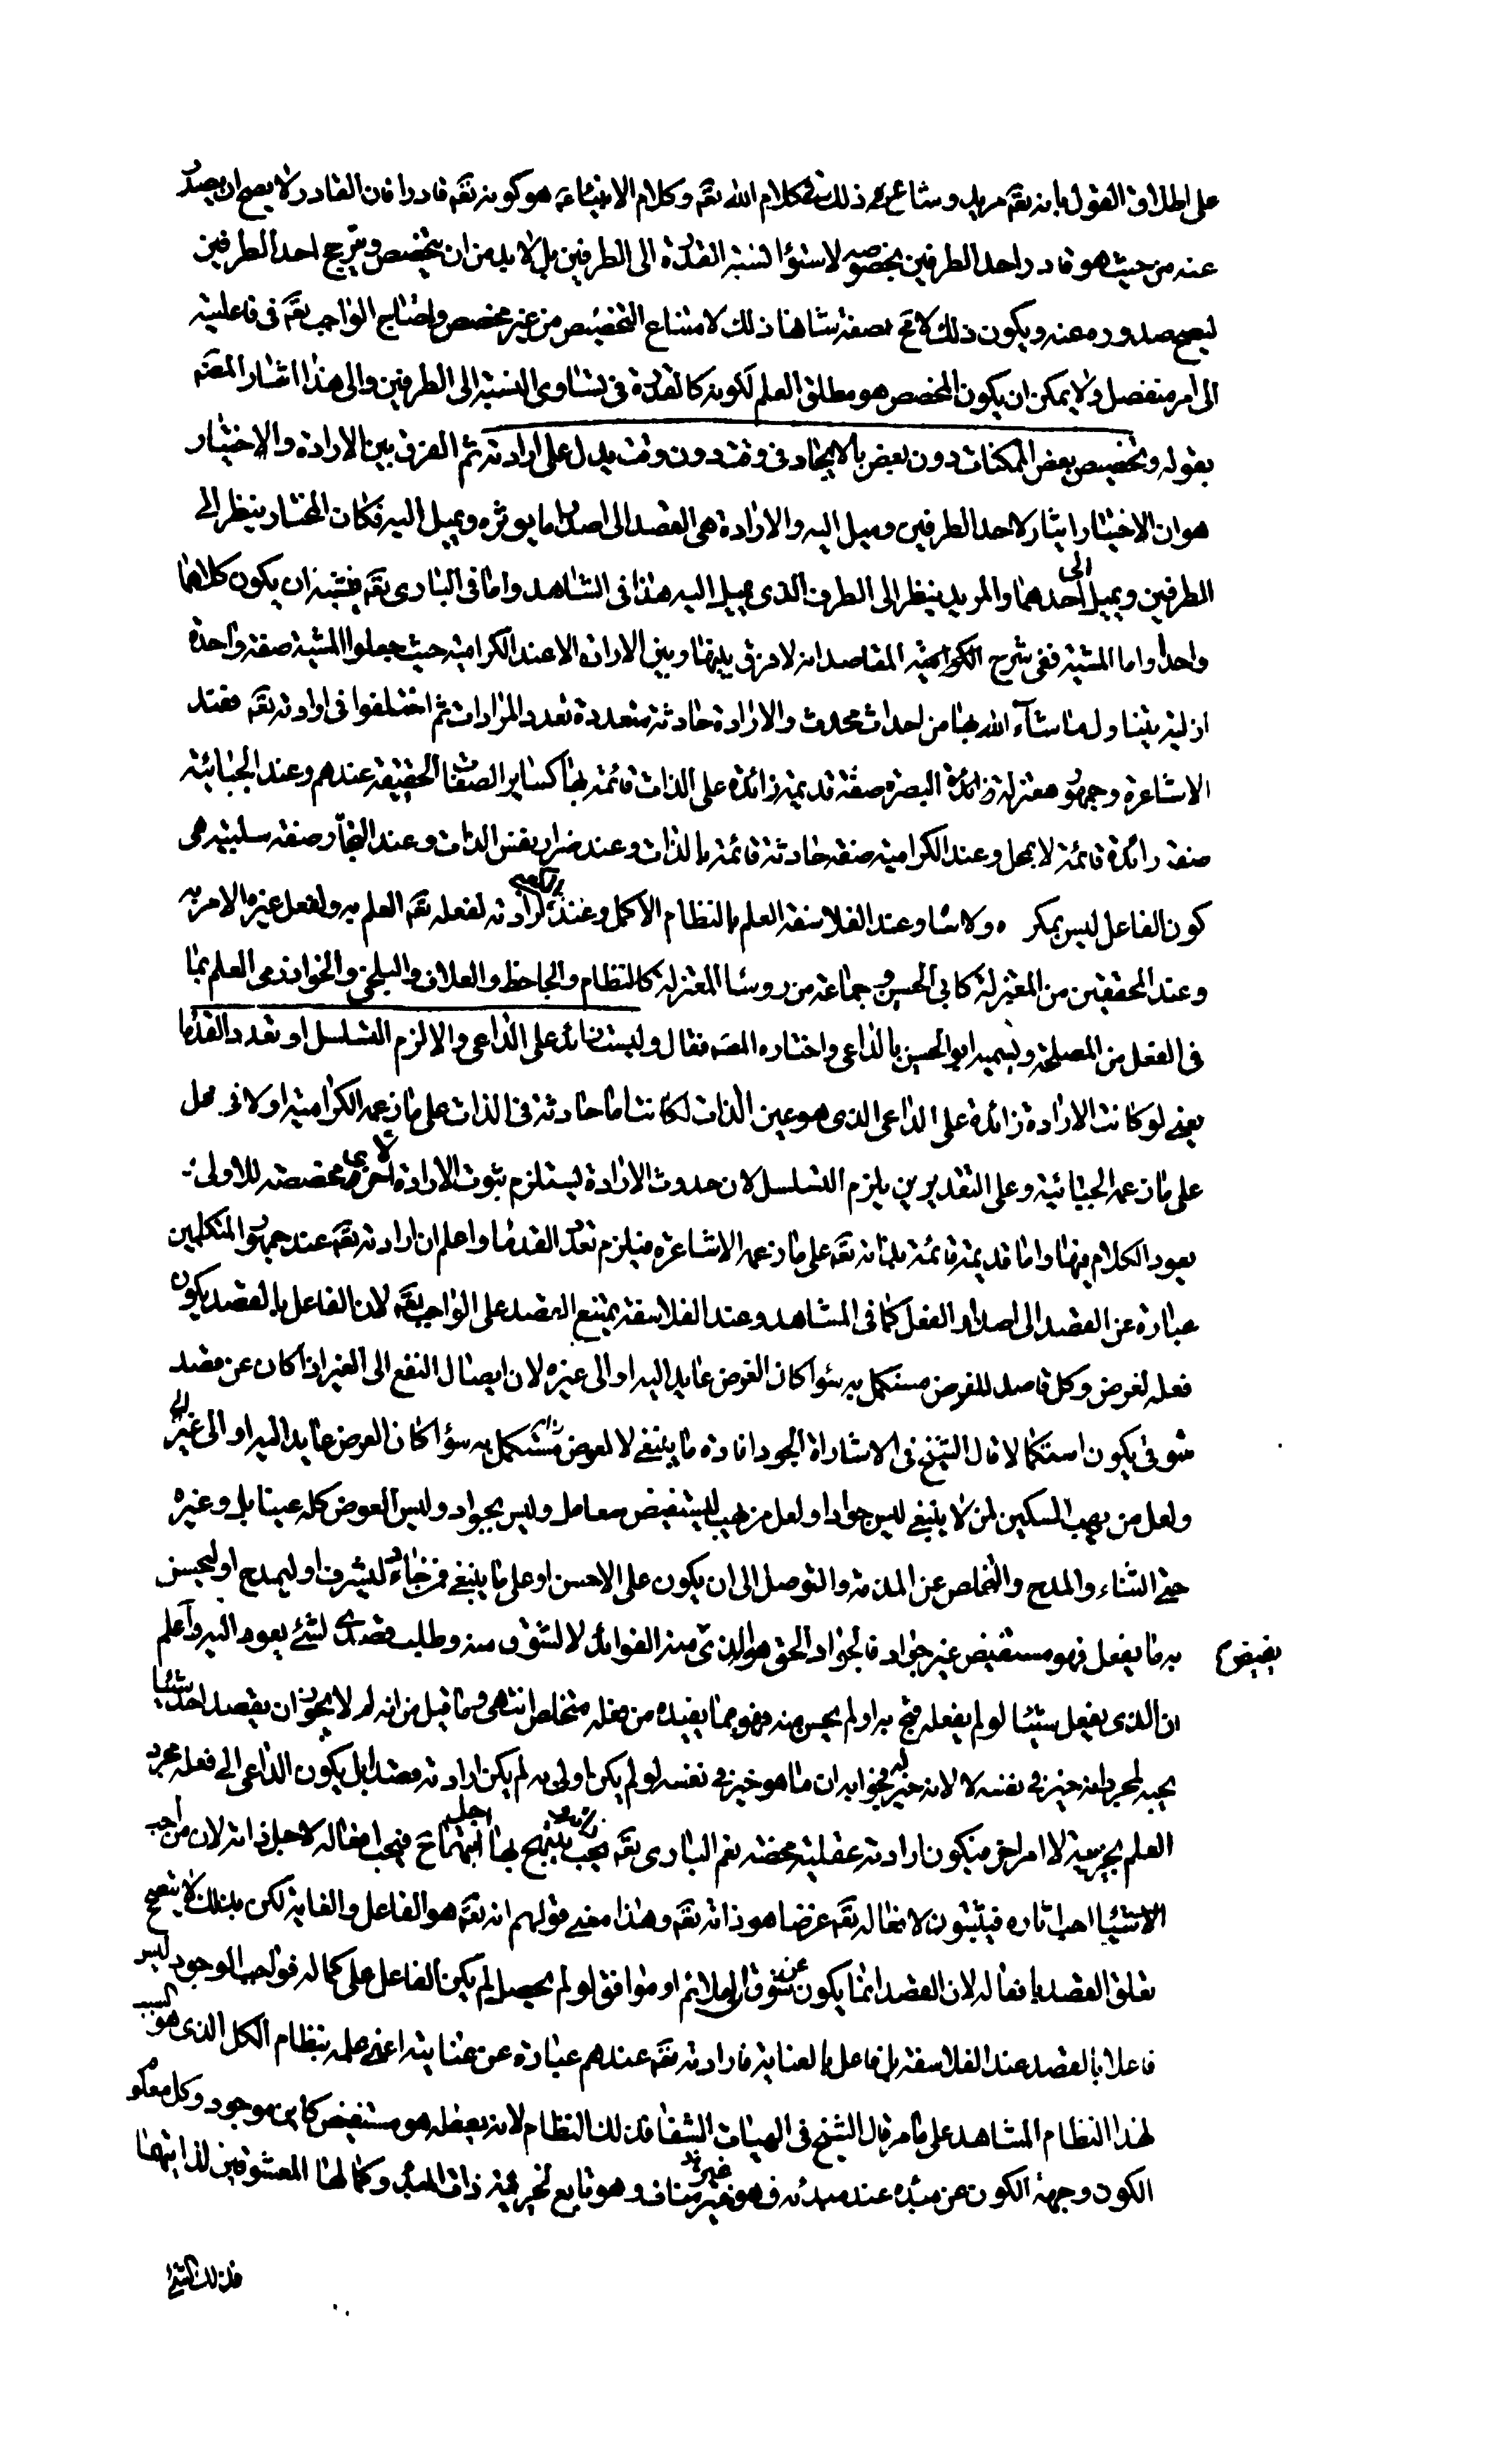 على اطلاق القول بانه تقم مريد وشاع ذلك فى كلام الله تقم وكلام الانبياء هو كونه تقم قادرا فان القادر لا يصح ان يصدر
عنه من حيث هو قادر احد الطرفين بخصوصه لاستواء لنسبة القدرة الى الطرفين بل لا بد من ان يتخصص ويترجح احد الطرفين
ليصح صدوره عنه ويكون ذلك لا مح بصفة شانها ذلك لامتناع التخصيص من غير مخصص واحتياج الواجب تقم فى فاعليته
الى امر منفصل ولا يمكن ان يكون المخصص هو مطلق العلم لكونه كالقدرة فى تساوى النسبة الى الطرفين والى هذا اشار المصنم
بقوله وتخصيص بعض الممكنات دون بعض بالايجاد فى وقت دون وقت يدل على ارادته ثم الفرق بين الارادة والاختيار
هو ان الاختيار ايثار لاحد الطرفين وميل اليه والارادة هى القصد الى اصدار ما يوثره ويميل اليه فكان المختار ينظر الى
الطرفين ويميل الى احدهما والمريد ينظر الى الطرف الذى يميل اليه هذا فى الشاهد واما فى البارى تقم فيشبه ان يكون كلاهما
واحدا واما المشية ففى شرح المقاصد انه لا فرق بينها وبين الارادة الا عند الكرامية حيث جعلوا المشية صفة واحدة
ازلية يتناول ما شآء الله بها من احداث محدث والارادة حادثة متعددة بعدد المرادات ثم اختلفوا فى ارادته تقم فعند
الاشاعرة وجمهور معتزلة البصرة صفة قديمة زائدة على الذات قائمة بها كساير الصفات الحقيقة عندهم وعند الجبائية
صفة زائدة قائمة لا بمحل وعند الكرامية صفة حادثة قائمة بالذات وعند ضرار نفس الذات وعند النجار صفة سلبية هى
كون الفاعل ليس بمكره ولا ساه وعند الفلاسفة العلم بالنظام الاكمل وعند الكعبى ارادته لفعله تقم العلم به ولفعل غيره الامر به
وعند المحققين من المعتزلة كابى الحسين وجماعة من روسا المعتزلة كالنظام والجاحظ والعلاف والبلخى والخوارزمى العلم بما
فى الفعل من المصلحة ويسميه ابو الحسين بالداعى واختاره المصنم فقال وليست زائدة على الداعى والا لزم التسلسل او تعدد القدما
يعنى لو كانت الارادة زائدة على الداعى الذى هو عين الذات لكانت اما حادثة فى الذات على ما زعمه الكرامية او لا فى محل
على ما زعمه الجبائية وعلى التقديرين يلزم التسلسل لان حدوث الارادة يستلزم ثبوت الارادة اخرى مخصصة للاولى
يعود الكلام فيها واما قديمة قائمة بذاته تقم على ما زعمه الاشاعرة فيلزم تعدد القدما واعلم ان ارادته تقم عند جمهور المتكلمين
عبارة عن القصد الى اصدار الفعل كما فى المشاهد وعند الفلاسفة يمتنع القصد على الواجب تقم لان الفاعل بالقصد يكون
فعله لغرض وكل قاصد للغرض مستكمل به سواء كان الغرض عايدا اليه او الى غيره لان ايصال النفع الى الغير اذا كان عن قصد
شوقى يكون استكمالا قال الشيخ فى الاشارات الجود افادة ما ينبغى لا لعوض
ولعل من يهب السكين لمن لا ينبغى ليس جوادا ولعل من يهب ليستعيض معامل وليس بجواد وليس العوض كله عينا بل وغيره
حتى الثناء والمدح والتخلص عن المذمة والتوصل الى ان يكون على الاحسن او على ما ينبغى فمن جاد ليشرف او ليمدح او ليحسن
به ما يفعل فهو مستعيض غير جواد فالجواد الحق هو الذى يفيض منه الفوائد لا لشوق منه وطلب قصدى لشئ يعود اليه واعلم
ان الذى يفعل شيئا لو لم يفعله قبح به او لم يحسن منه فهو بما يفيده من فعله متخلص انتهى وما قيل من انه لم لا يجوز ان يقصد احد شيئا
يحبه لمجرد انه خير فى نفسه لا لانه خير له فجوابه ان ما هو خير فى نفسه لو لم يكن اولى به لم يكن ارادته قصدا بل يكون الداعى الى فعله مجرد
العلم بخيريته لا امر اخر فيكون ارادته عقلية محضة نعم البارى تقم فيحب افعاله لاجل ذاته لان من احب
الاشيا احب اثاره فيثبتون لافعاله تقم غرضا هو ذاته تقم وهذا معنى قولهم انه تقم هو الفاعل والغاية لكن بذلك لا يتصحح
تعلق القصد بافعاله لان القصد انما يكون عن شوق الى ملائم او موافق لو لم يحصل لم يكن الفاعل على كماله فواجب الوجود ليس
فاعلا بالقصد عند الفلاسفة بل فاعل بالعناية فارادته تقم عندهم عبارة عن عنايته اعنى علمه بنظام الكل الذى هو سبب
لهذا النظام المشاهد على ما مر قال الشيخ فى الهيات الشفا فذلك النظام لانه يعقله هو مستفيض كاين موجود وكل معلوم
الكون وجهة الكون عن مبدئه عند مبدئه فهو خير غير مناف وهو تابع لخيرية ذات المبدء وكمالها المعشوقين لذاتيهما
فذلك الشئ